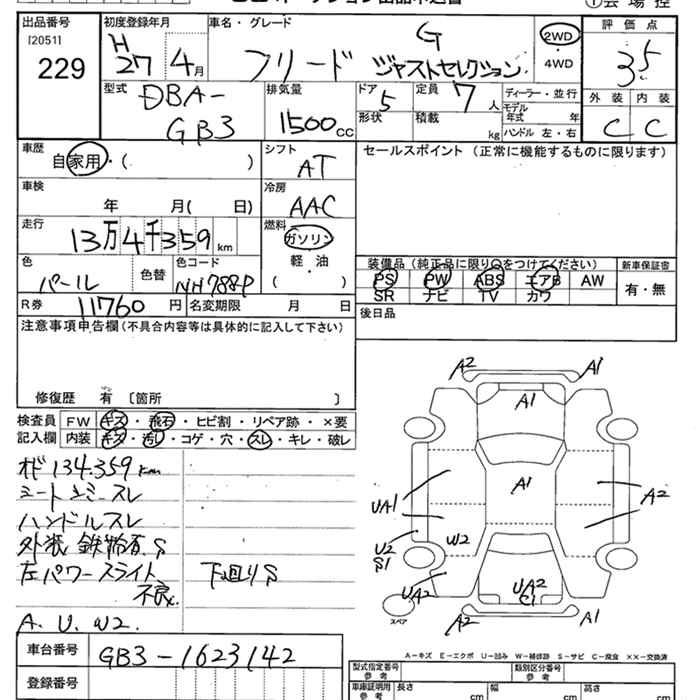 出品番号 初度登録年月 車名・グレード 評価点
[20511] H 27年 4月 フリード G ジャストセレクション 2WD 3.5
229 4WD
型式 排気量 ドア 定員 ディーラー・並行 外装 内装
DBA- 5 7人 モデル年式 年 C C
GB3 1500cc 形状 積載 kg ハンドル 左・右
車歴 シフト セールスポイント (正常に機能するものに限ります)
自家用・( ) AT
車検 冷房
年 月( 日) AAC
走行 燃料
13万4千359km ガソリン
色 色替 色コード 軽・油 装備品 (純正品に限り○をつけてください) 新車保証書
パール NH788P ( ) PS PW ABS エアB AW 有・無
R券 11760円 名変期限 月 日 SR ナビ TV カワ
注意事項申告欄(不具合内容等は具体的に記入して下さい) 後日品
修復歴 有 〔箇所 〕
検査員 FW キズ・飛石・ヒビ割・リペア跡・×要
記入欄 内装 キズ・汚れ・コゲ・穴・スレ・キレ・破レ
A2 A1
A1
オド134,359km
シートシミースレ
A1 A2
UA1
ハンドルスレ
U2 W2
S1
外装 鉄粉有.S
左パワースライド 下廻りS
不良.
UA2 UA2
C1
スペア A2 A1
A.U.W2.
A-キズ E-エクボ U-凹み W-補修跡 S-サビ C-腐食 ××-交換済
車台番号 GB3-1623142
型式指定番号 参考 類別区分番号 参考
登録番号
車庫証明用 参考 長さ cm 幅 cm 高さ cm